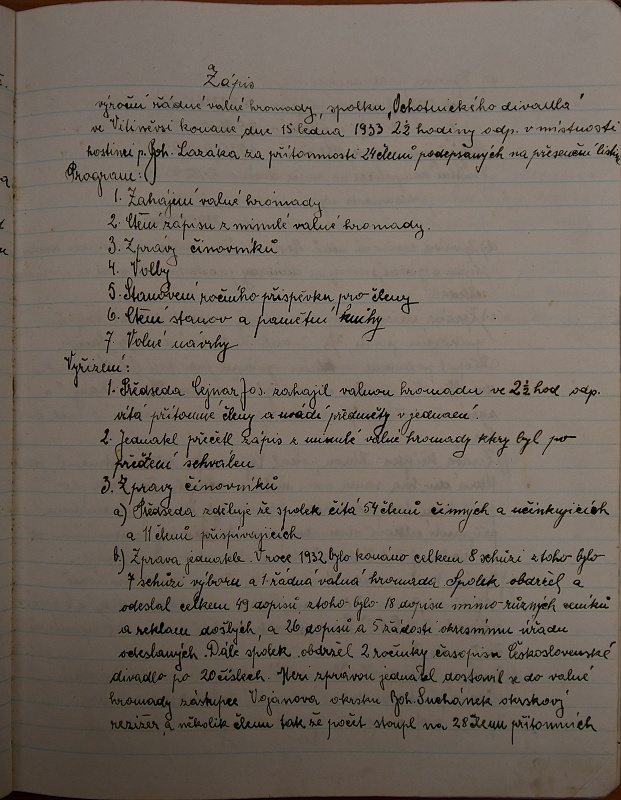 Zápis
výroční řádné valné hromady, spolku „Ochotnického divadla"
ve Vitiněvsi konané, dne 15 ledna 1933 2½ hodiny odp. v místnosti
hostinci p. Joh. Lazáka za přítomnosti 24 členů podepsaných na presenční listě
Program:
1. Zahájení valné hromady
2. Čtení zápisu z minulé valné hromady.
3. Zprávy činovníků
4. Volby
5. Stanovení ročního příspěvku pro členy
6. Čtení stanov a pamětní knihy
7. Volné návrhy
Vyřízení:
1. Předseda Cejnar Jos. zahájil valnou hromadu ve 2½ hod odp.
vítá přítomné členy a uvádí předměty v jednací.
2. Jednatel přečetl zápis z minulé valné hromady ktry byl po
přečtení schválen
3. Zprávy činovníků
a) Předseda zděluje že spolek čítá 54 členů činných a učinkujících
a 11 členů přispívajících
b.) Zpráva jednatele. V roce 1932 bylo konáno celkem 8 schůzí z toho bylo
7 schůzí výboru a 1 řádná valná hromada. Spolek obdržel a
odeslal celkem 49 dopisů z toho bylo 18 dopisu mimo různých ceníků
a reklam došlých, a 26 dopisů a 5 žádostí okresnímu úřadu
odeslaných. Dále spolek obdržel 2 ročníky časopisu Československé
divadlo po 20 číslech. Mezi zprávou jednatel dostavil se do valné
hromady zástupce Vojanova okrsku Boh. Suchánek okrskový
režizér, a několik členu tak že počet stoupl na 28 členu přítomních